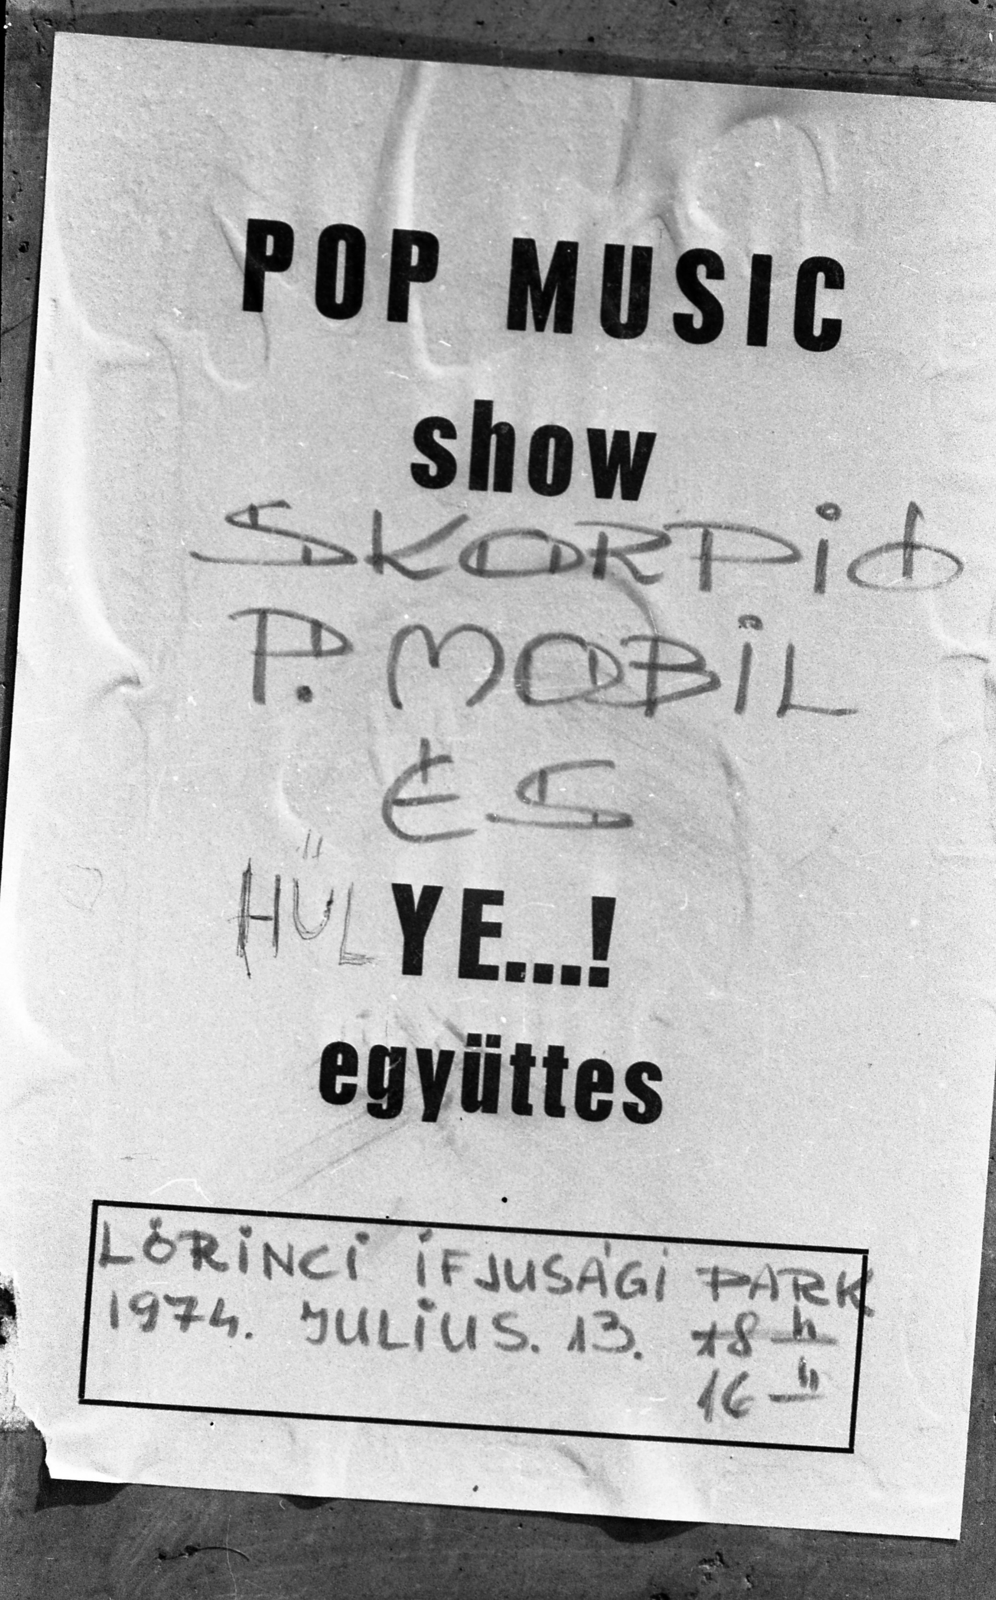 POP MUSIC
show
SKORPIÓ
P. MOBIL
ÉS
HÜLYE...!
együttes
LŐRINCI IFJUSÁGI PARK.
1974. JULIUS. 13. 18 h
16 h